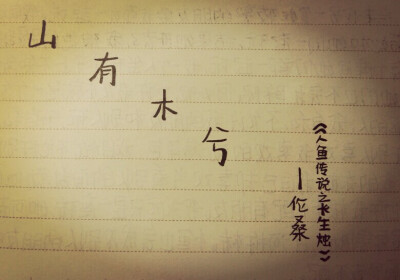 山有木兮
——伦桑
《人鱼传说之长生烛》